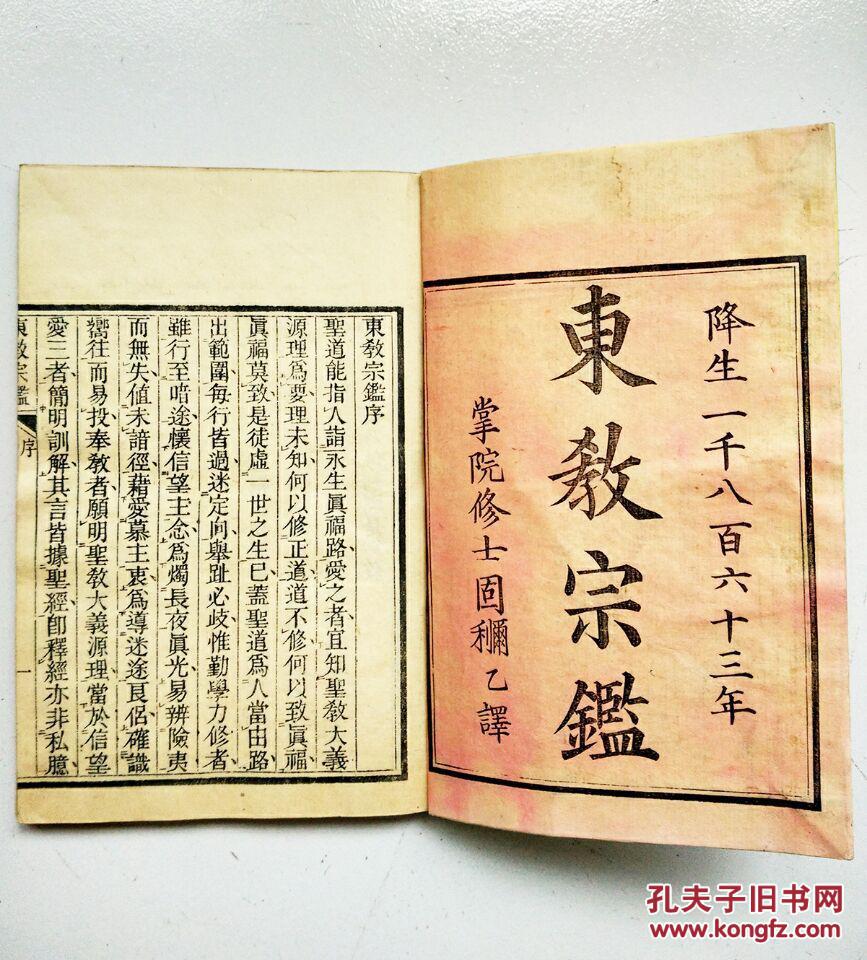 降生一千八百六十三年
東教宗鑑
掌院修士固利爾乙譯
東教宗鑑序
聖道能指人詣永生眞福路愛之者宜知聖教大義
源理爲要理未知何以修正道道不修何以致眞福
眞福莫致是徒虛一世之生已蓋聖道爲人當由路
出範圍每行皆過迷定向舉趾必歧惟勤學力修者
雖行至暗途懷信望主念爲燭長夜眞光易辨險夷
而無失值未諳徑藉愛慕主衷爲導迷途良侶確識
嚮往而易投奉教者願明聖教大義源理當於信望
愛三者簡明訓解其言皆據聖經卽釋經亦非私臆
東教宗鑑
序
一
孔夫子旧书网
www.kongfz.com